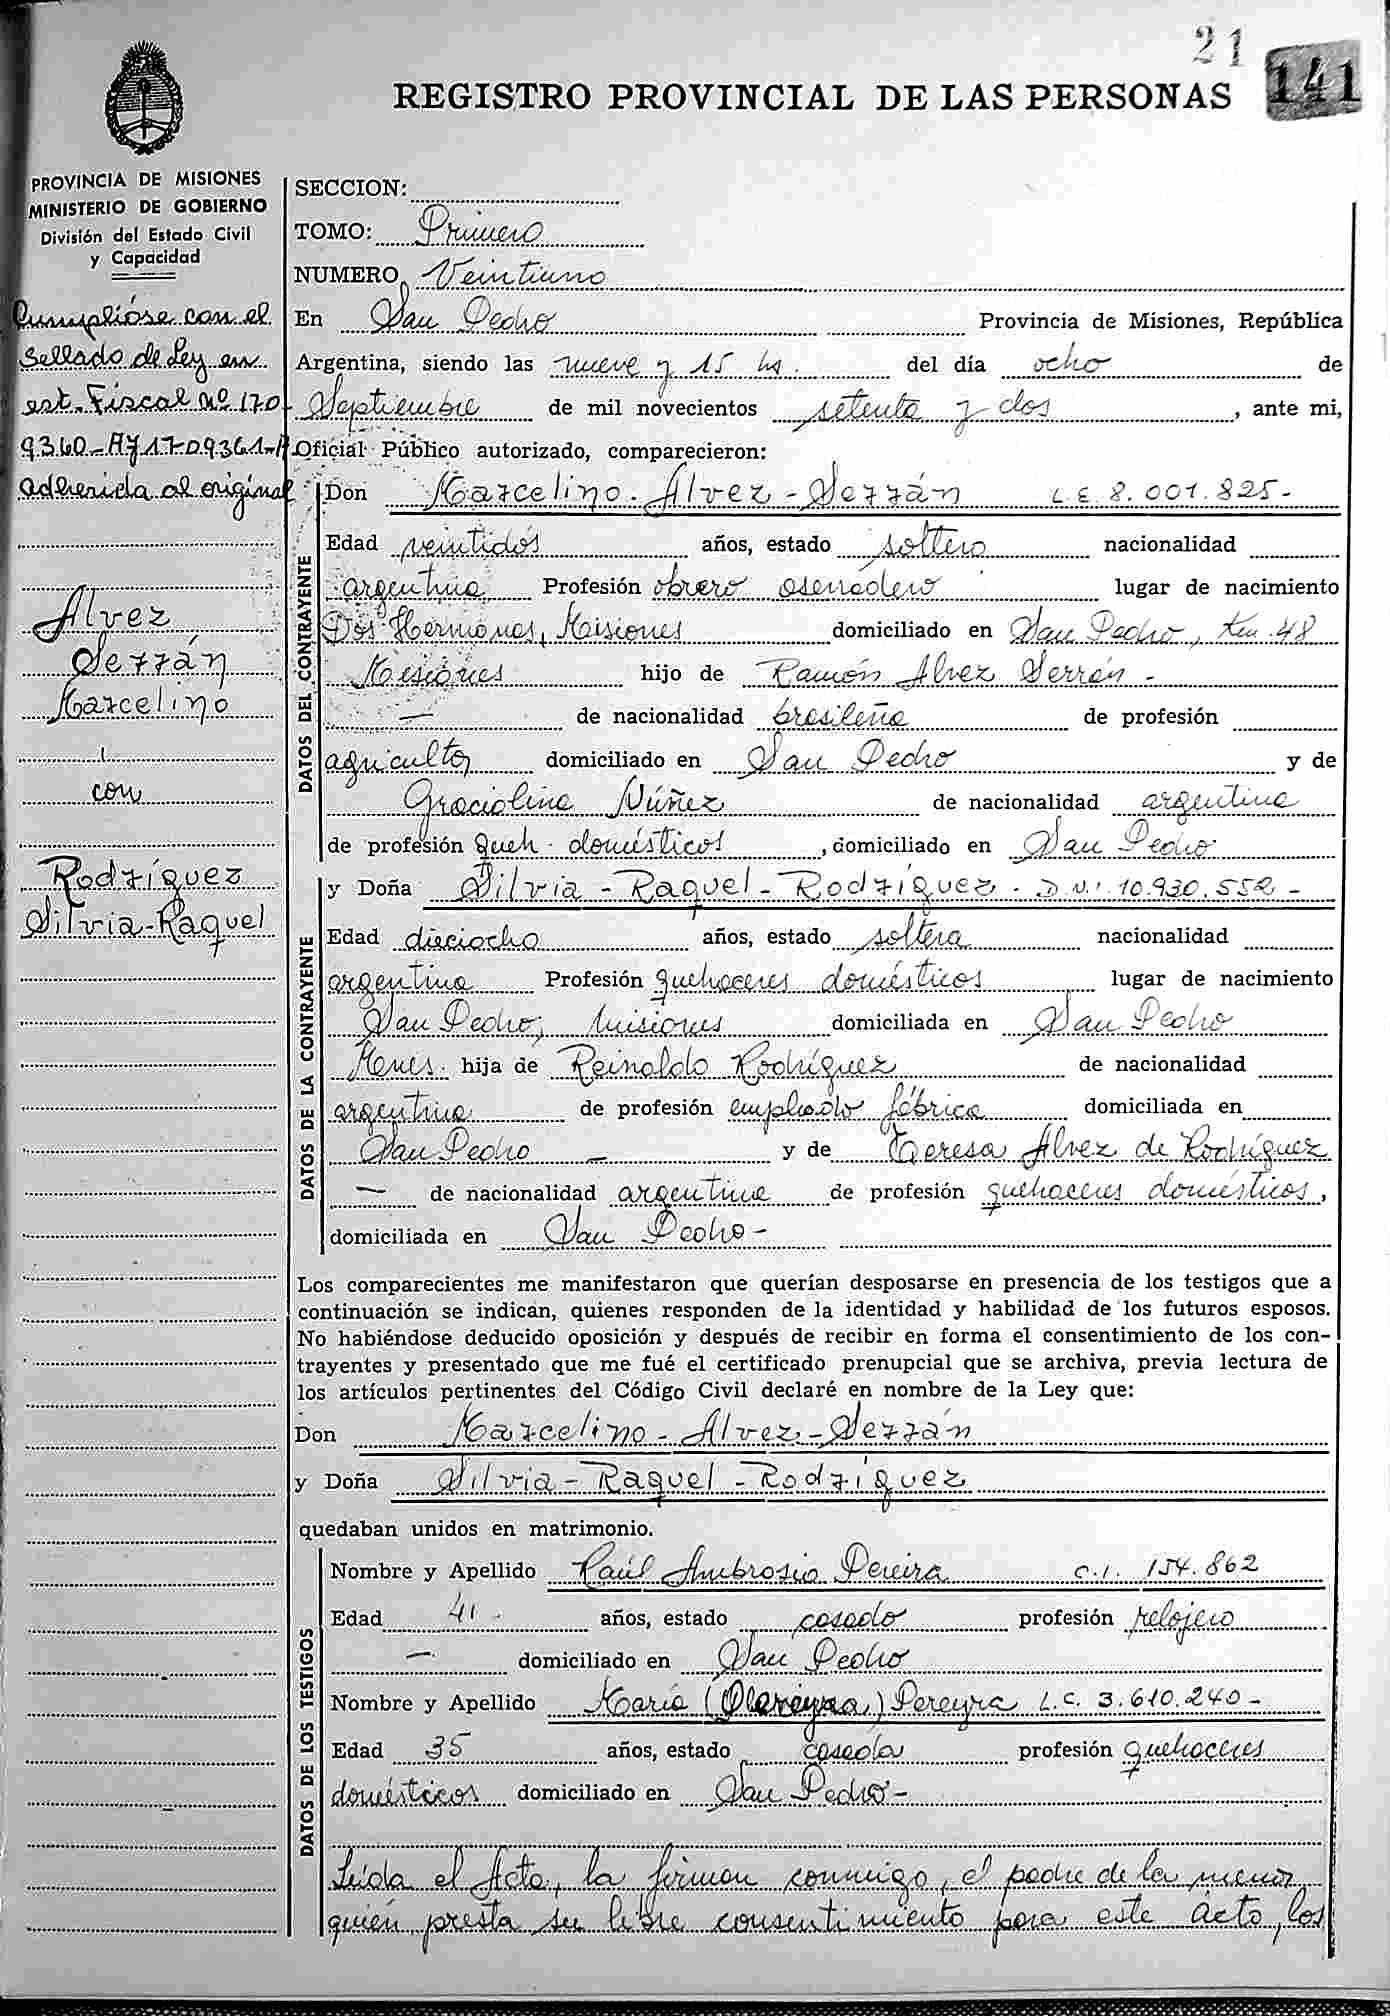 21
141
REGISTRO PROVINCIAL DE LAS PERSONAS
PROVINCIA DE MISIONES
MINISTERIO DE GOBIERNO
División del Estado Civil
y Capacidad
Cumplióse con el
sellado de Ley en
est. Fiscal Nº 170
9360-A y 1709361-A
adherida al original
Alvez
Serrán
Marcelino
con
Rodríguez
Silvia-Raquel
SECCION:
TOMO: Primero
NUMERO Veintiuno
En San Pedro Provincia de Misiones, República
Argentina, siendo las nueve y 15 hs. del día ocho de
Septiembre de mil novecientos setenta y dos, ante mi,
Oficial Público autorizado, comparecieron:
DATOS DEL CONTRAYENTE
Don Marcelino-Alvez-Serrán L.E. 8.001.825-
Edad veintidós años, estado soltero nacionalidad
argentina Profesión obrero aserradero lugar de nacimiento
Dos Hermanas, Misiones domiciliado en San Pedro, Km. 48
Misiones hijo de Ramón Alvez Serrán -
— de nacionalidad brasileña de profesión
agricultor domiciliado en San Pedro y de
Graciolina Núñez de nacionalidad argentina
de profesión queh. domésticos, domiciliado en San Pedro
DATOS DE LA CONTRAYENTE
y Doña Silvia-Raquel-Rodríguez- D.N.I. 10.930.552-
Edad dieciocho años, estado soltera nacionalidad
argentina Profesión quehaceres domésticos lugar de nacimiento
San Pedro, Misiones domiciliada en San Pedro
Mnes. hija de Reinaldo Rodríguez de nacionalidad
argentina de profesión empleado fábrica domiciliada en
San Pedro — y de Teresa Alvez de Rodríguez
— de nacionalidad argentina de profesión quehaceres domésticos,
domiciliada en San Pedro-
Los comparecientes me manifestaron que querían desposarse en presencia de los testigos que a
continuación se indican, quienes responden de la identidad y habilidad de los futuros esposos.
No habiéndose deducido oposición y después de recibir en forma el consentimiento de los con-
trayentes y presentado que me fué el certificado prenupcial que se archiva, previa lectura de
los artículos pertinentes del Código Civil declaré en nombre de la Ley que:
Don Marcelino-Alvez-Serrán
y Doña Silvia-Raquel-Rodríguez
quedaban unidos en matrimonio.
DATOS DE LOS TESTIGOS
Nombre y Apellido Raúl Ambrosio Pereira C.I. 154.862
Edad 41 años, estado casado profesión relojero
— domiciliado en San Pedro
Nombre y Apellido María ( ) Pereyra L.C. 3.610.240-
Edad 35 años, estado casada profesión quehaceres
domésticos domiciliado en San Pedro-
Leída el Acta, la firman conmigo, el padre de la menor
quien presta su libre consentimiento para este acto, los